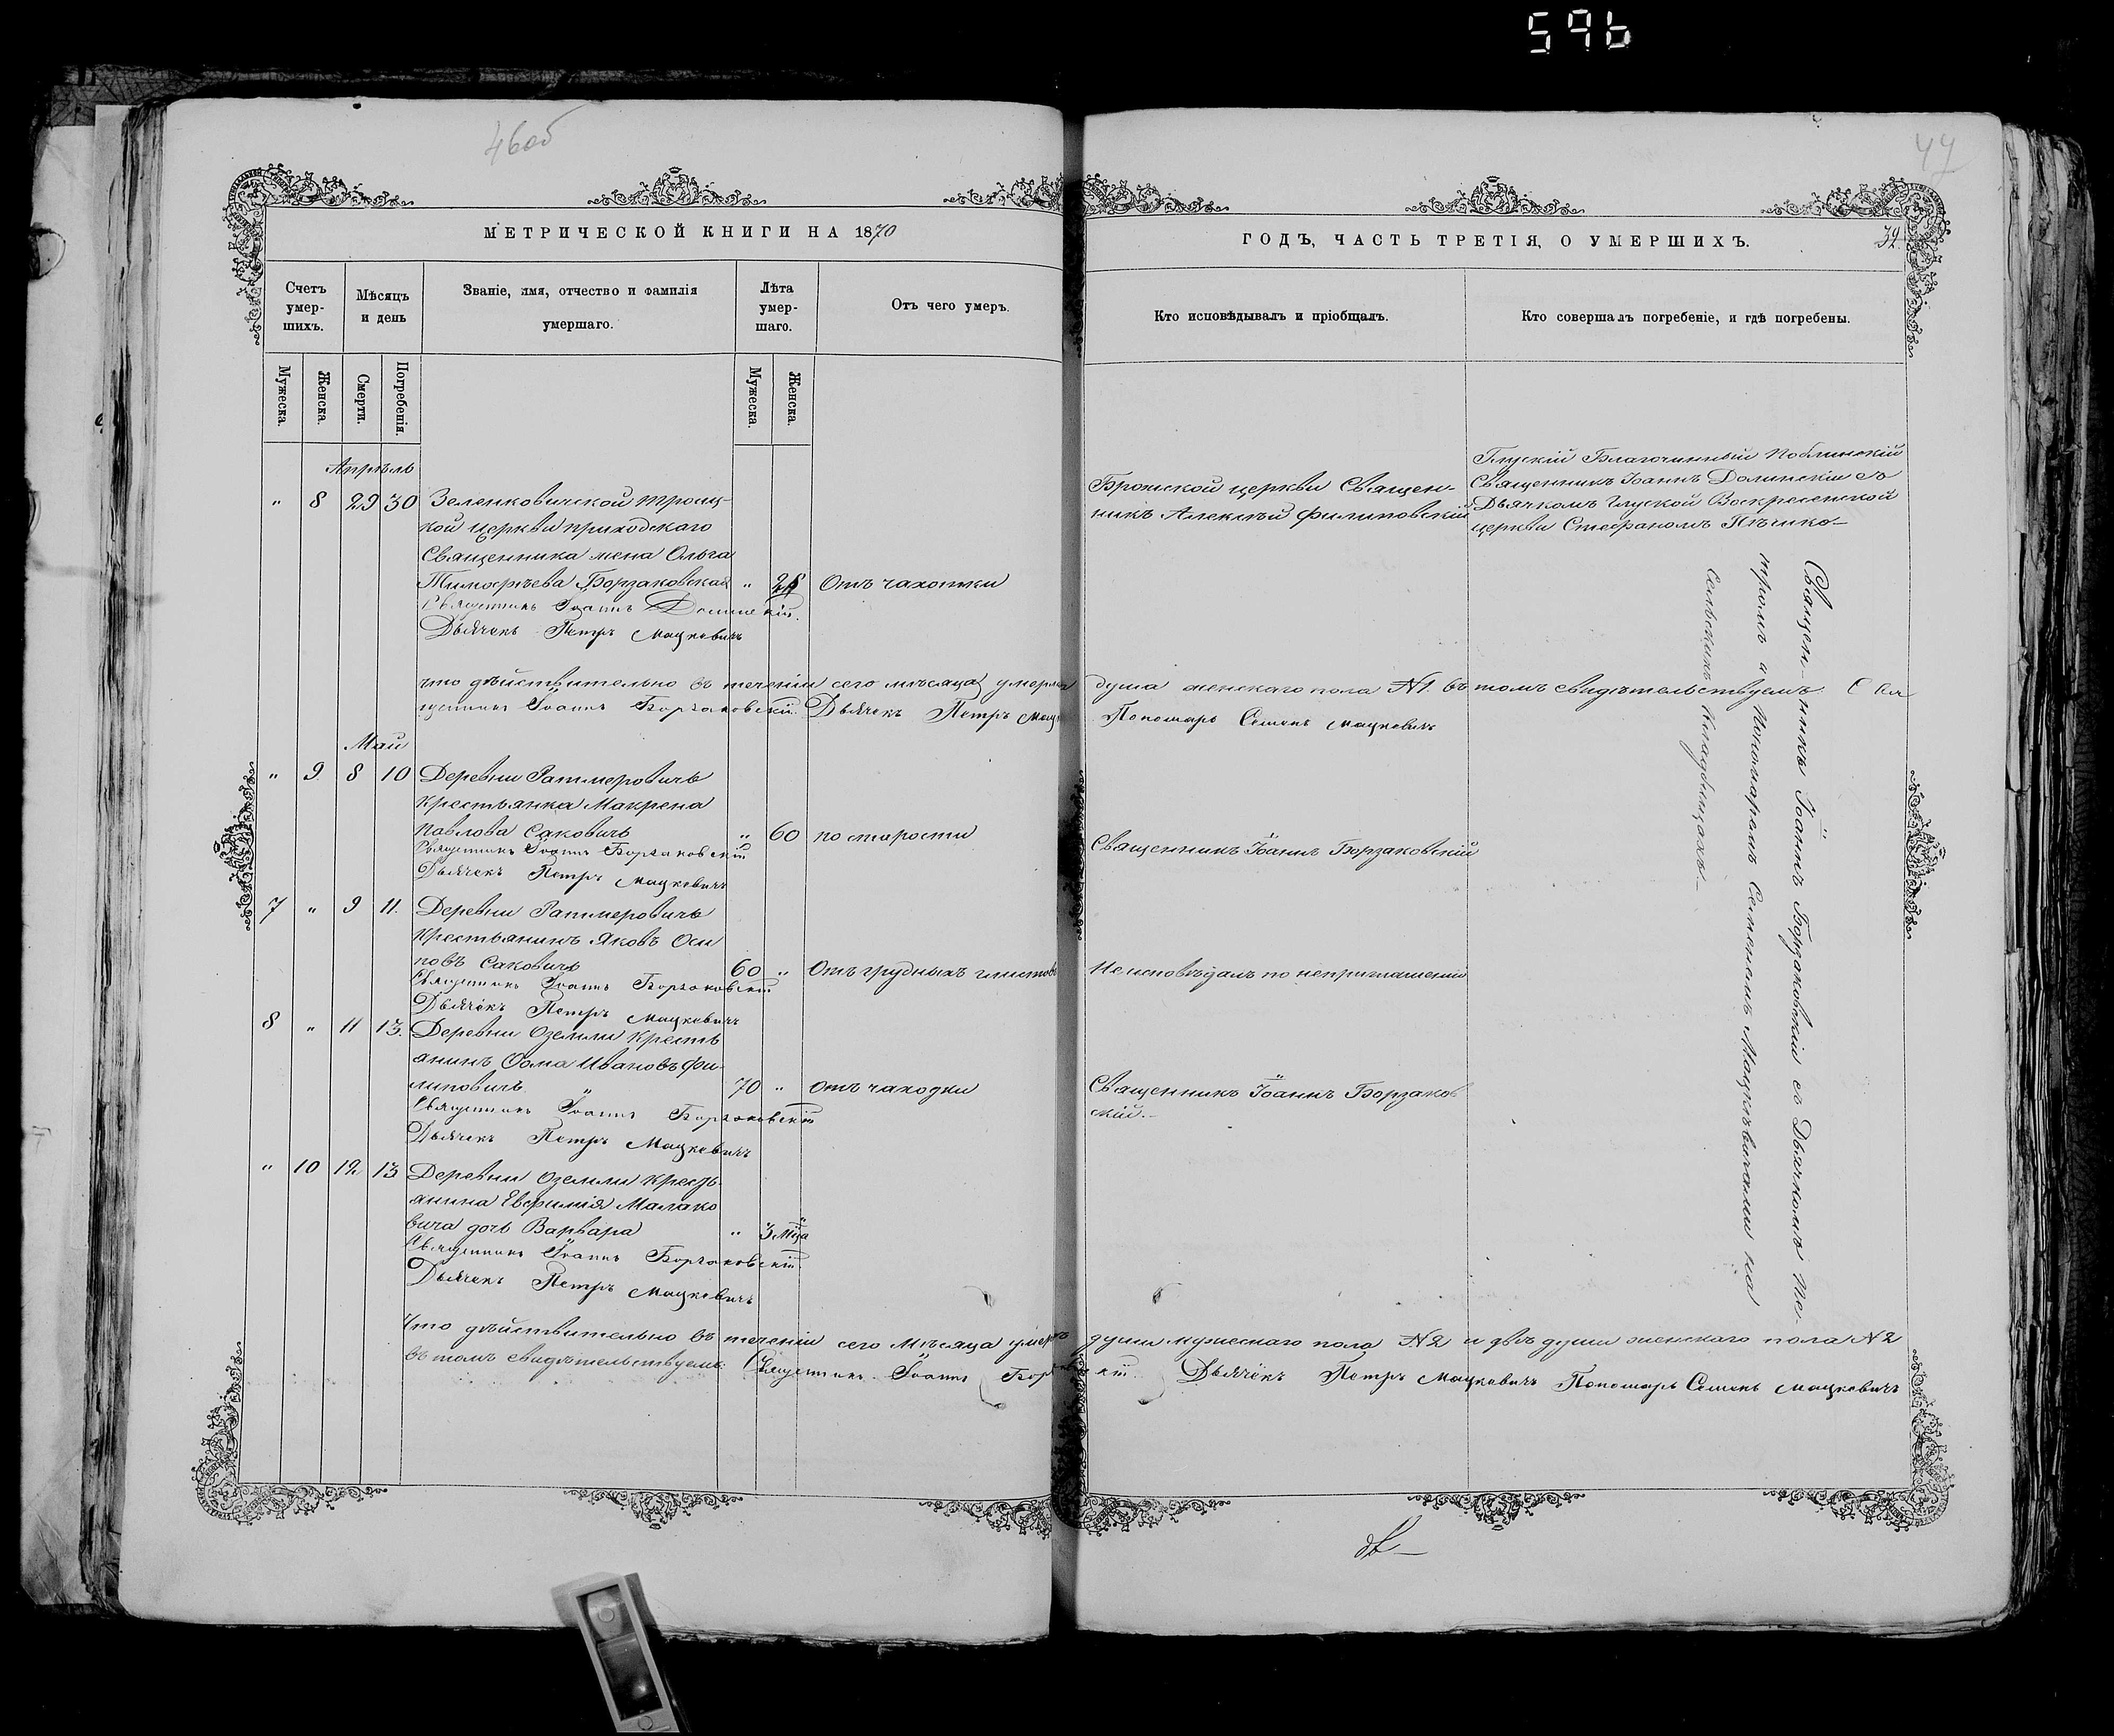 59b
46об
47
МЕТРИЧЕСКОЙ КНИГИ НА 1870
ГОДЪ, ЧАСТЬ ТРЕТІЯ, О УМЕРШИХЪ.
Счетъ умер-шихъ.
Мѣсяцъ и день
Званіе, имя, отчество и фамилія умершаго.
Лѣта умер-шаго.
Отъ чего умеръ.
Кто исповѣдывалъ и пріобщалъ.
Кто совершалъ погребеніе, и гдѣ погребены.
Мужеска.
Женска.
Смерти.
Погребенія.
Мужеска.
Женска.
Апрѣль
" 8 29 30 Зеленковичской троиц-
кой церкви приходскаго
Священника жена Ольга
Тимофѣева Борзаковская " Отъ чахотки
Священникъ Іоаннъ Долинскій.
Дьячекъ Петръ Мацкевичъ
Бропской церкви Священ-
никъ Алексѣй Филиповскій
Глускій Благочинный
Священникъ Іоаннъ Долинскій съ
Дьячкомъ Глуской Воскресенской
церкви Стефаномъ
что дѣйствительно въ теченіи сего мѣсяца умерла душа женскаго пола №1. въ томъ свидѣтельствуемъ. Свя
щенникъ Іоаннъ Борзаковскій. Дьячекъ Петръ Мацк
Пономарь Семенъ Мацкевичъ
Май
" 9 8 10 Деревни Ратмеровичъ
крестьянка Макрена
Павлова Саковичъ " 60 по старости
Священникъ Іоаннъ Борзаковскій
Дьячекъ Петръ Мацкевичъ
Священникъ Іоаннъ Борзаковскій
7 " 9 11. Деревни Ратмеровичъ
Крестьянинъ Яковъ Оси
повъ Саковичъ 60 " Отъ грудныхъ глистовъ
Священникъ Іоаннъ Борзаковскій
Дьячекъ Петръ Мацкевичъ
Не исповѣданъ по неприглашенію
8 " 11 13. Деревни Оземли кресть
янинъ Фома Ивановъ Фи-
липовичъ 70 " отъ чаходки
Священникъ Іоаннъ Борзаковскій
Дьячекъ Петръ Мацкевичъ
Священникъ Іоаннъ Борзаков
скій.
" 10 12 13 Деревни Оземли кресть
янина Евфимія Малако
вича дочь Варвара " 3 мца
Священникъ Іоаннъ Борзаковскій
Дьячекъ Петръ Мацкевичъ
Священникъ Іоаннъ Борзаковскій съ Дьячкомъ Пе-
тромъ и Пономаремъ Семеномъ Мацкѣвичами на
Сельскихъ Кладбищахъ.
Что дѣйствительно въ теченіи сего Мѣсяца умерло души мужескаго пола №2 и двѣ души женскаго пола №2
въ томъ свидѣтельствуемъ. Священникъ Іоаннъ Борзаковскій. Дьячекъ Петръ Мацкевичъ Пономарь Семенъ Мацкевичъ